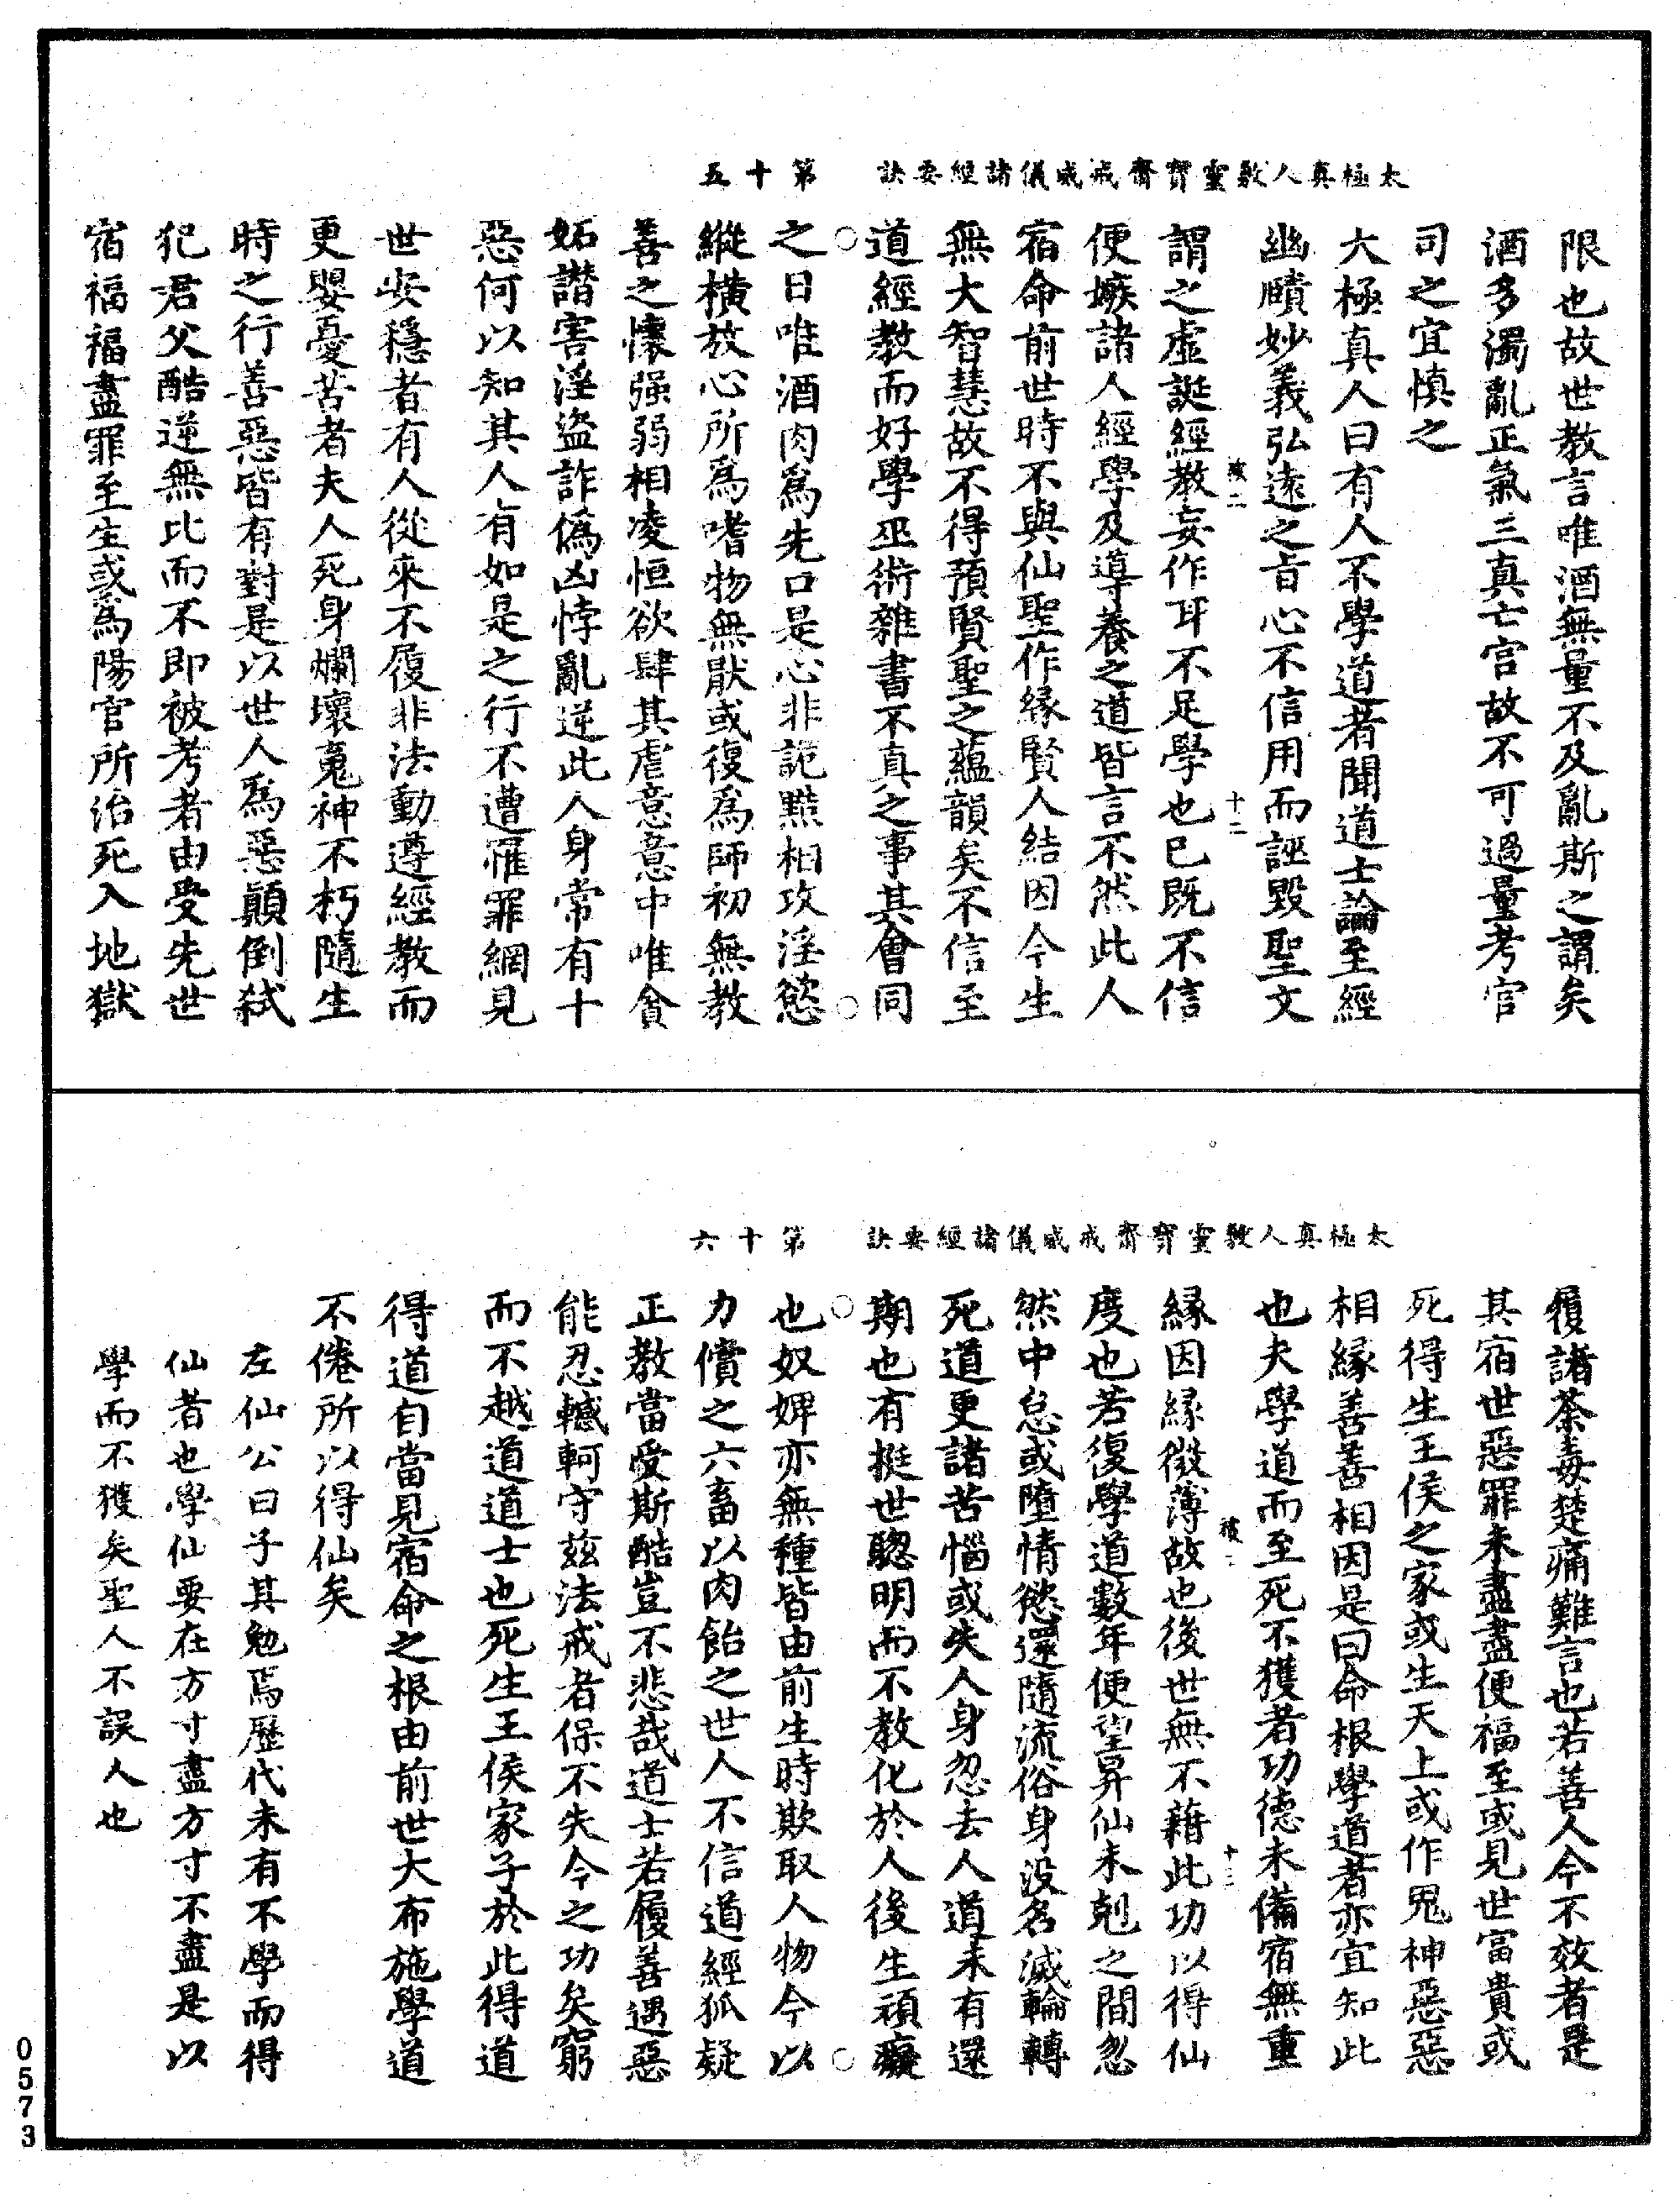 太極真人敷靈寶齋戒威儀諸經要訣　第十五
限也故世教言唯酒無量不及亂斯之謂矣
酒多濁亂正氣三真亡宫故不可過量考官
司之宜慎之
大極真人曰有人不學道者聞道士論至經
幽賾妙義弘遠之旨心不信用而誣毀聖文
謂之虛誕經教妄作耳不足學也已既不信
被二　十二
便嫉諸人經學及導養之道皆言不然此人
宿命前世時不與仙聖作緣賢人結因今生
無大智慧故不得預賢聖之蘊韻矣不信至
道經教而好學巫術雜書不真之事其會同
之日唯酒肉為先口是心非詭黠相攻淫慾
縱橫放心所為嗜物無猒或復為師初無教
善之懷强弱相凌恒欲肆其虐意意中唯貪
妬譖害淫盜詐偽凶悖亂逆此人身常有十
惡何以知其人有如是之行不遭罹罪網見
世安穩者有人從來不履非法動遵經教而
更嬰憂苦者夫人死身爛壞䰟神不朽隨生
時之行善惡皆有對是以世人為惡顛倒弑
犯君父酷逆無比而不即被考者由受先世
宿福福盡罪至生或為陽官所治死入地獄
太極真人敷靈寶齋戒威儀諸經要訣　第十六
履諸荼毒楚痛難言也若善人今不效者是
其宿世惡罪未盡盡便福至或見世富貴或
死得生王侯之家或生天上或作鬼神惡惡
相緣善善相因是曰命根學道者亦宜知此
也夫學道而至死不獲者功德未備宿無重
緣因緣微薄故也後世無不藉此功以得仙
被二　十三
度也若復學道數年便望昇仙未剋之間忽
然中怠或墮情慾還隨流俗身没名滅輪轉
死道更諸苦惱或失人身忽去人道未有還
期也有挺世聦明而不教化於人後生頑癡
也奴婢亦無種皆由前生時欺取人物今以
力償之六畜以肉飴之世人不信道經狐疑
正教當受斯酷豈不悲哉道士若履善遇惡
能忍轗軻守兹法戒者保不失今之功矣窮
而不越道道士也死生王侯家子於此得道
得道自當見宿命之根由前世大布施學道
不倦所以得仙矣
左仙公曰子其勉焉歷代未有不學而得
仙者也學仙要在方寸盡方寸不盡是以
學而不獲矣聖人不誤人也
0573